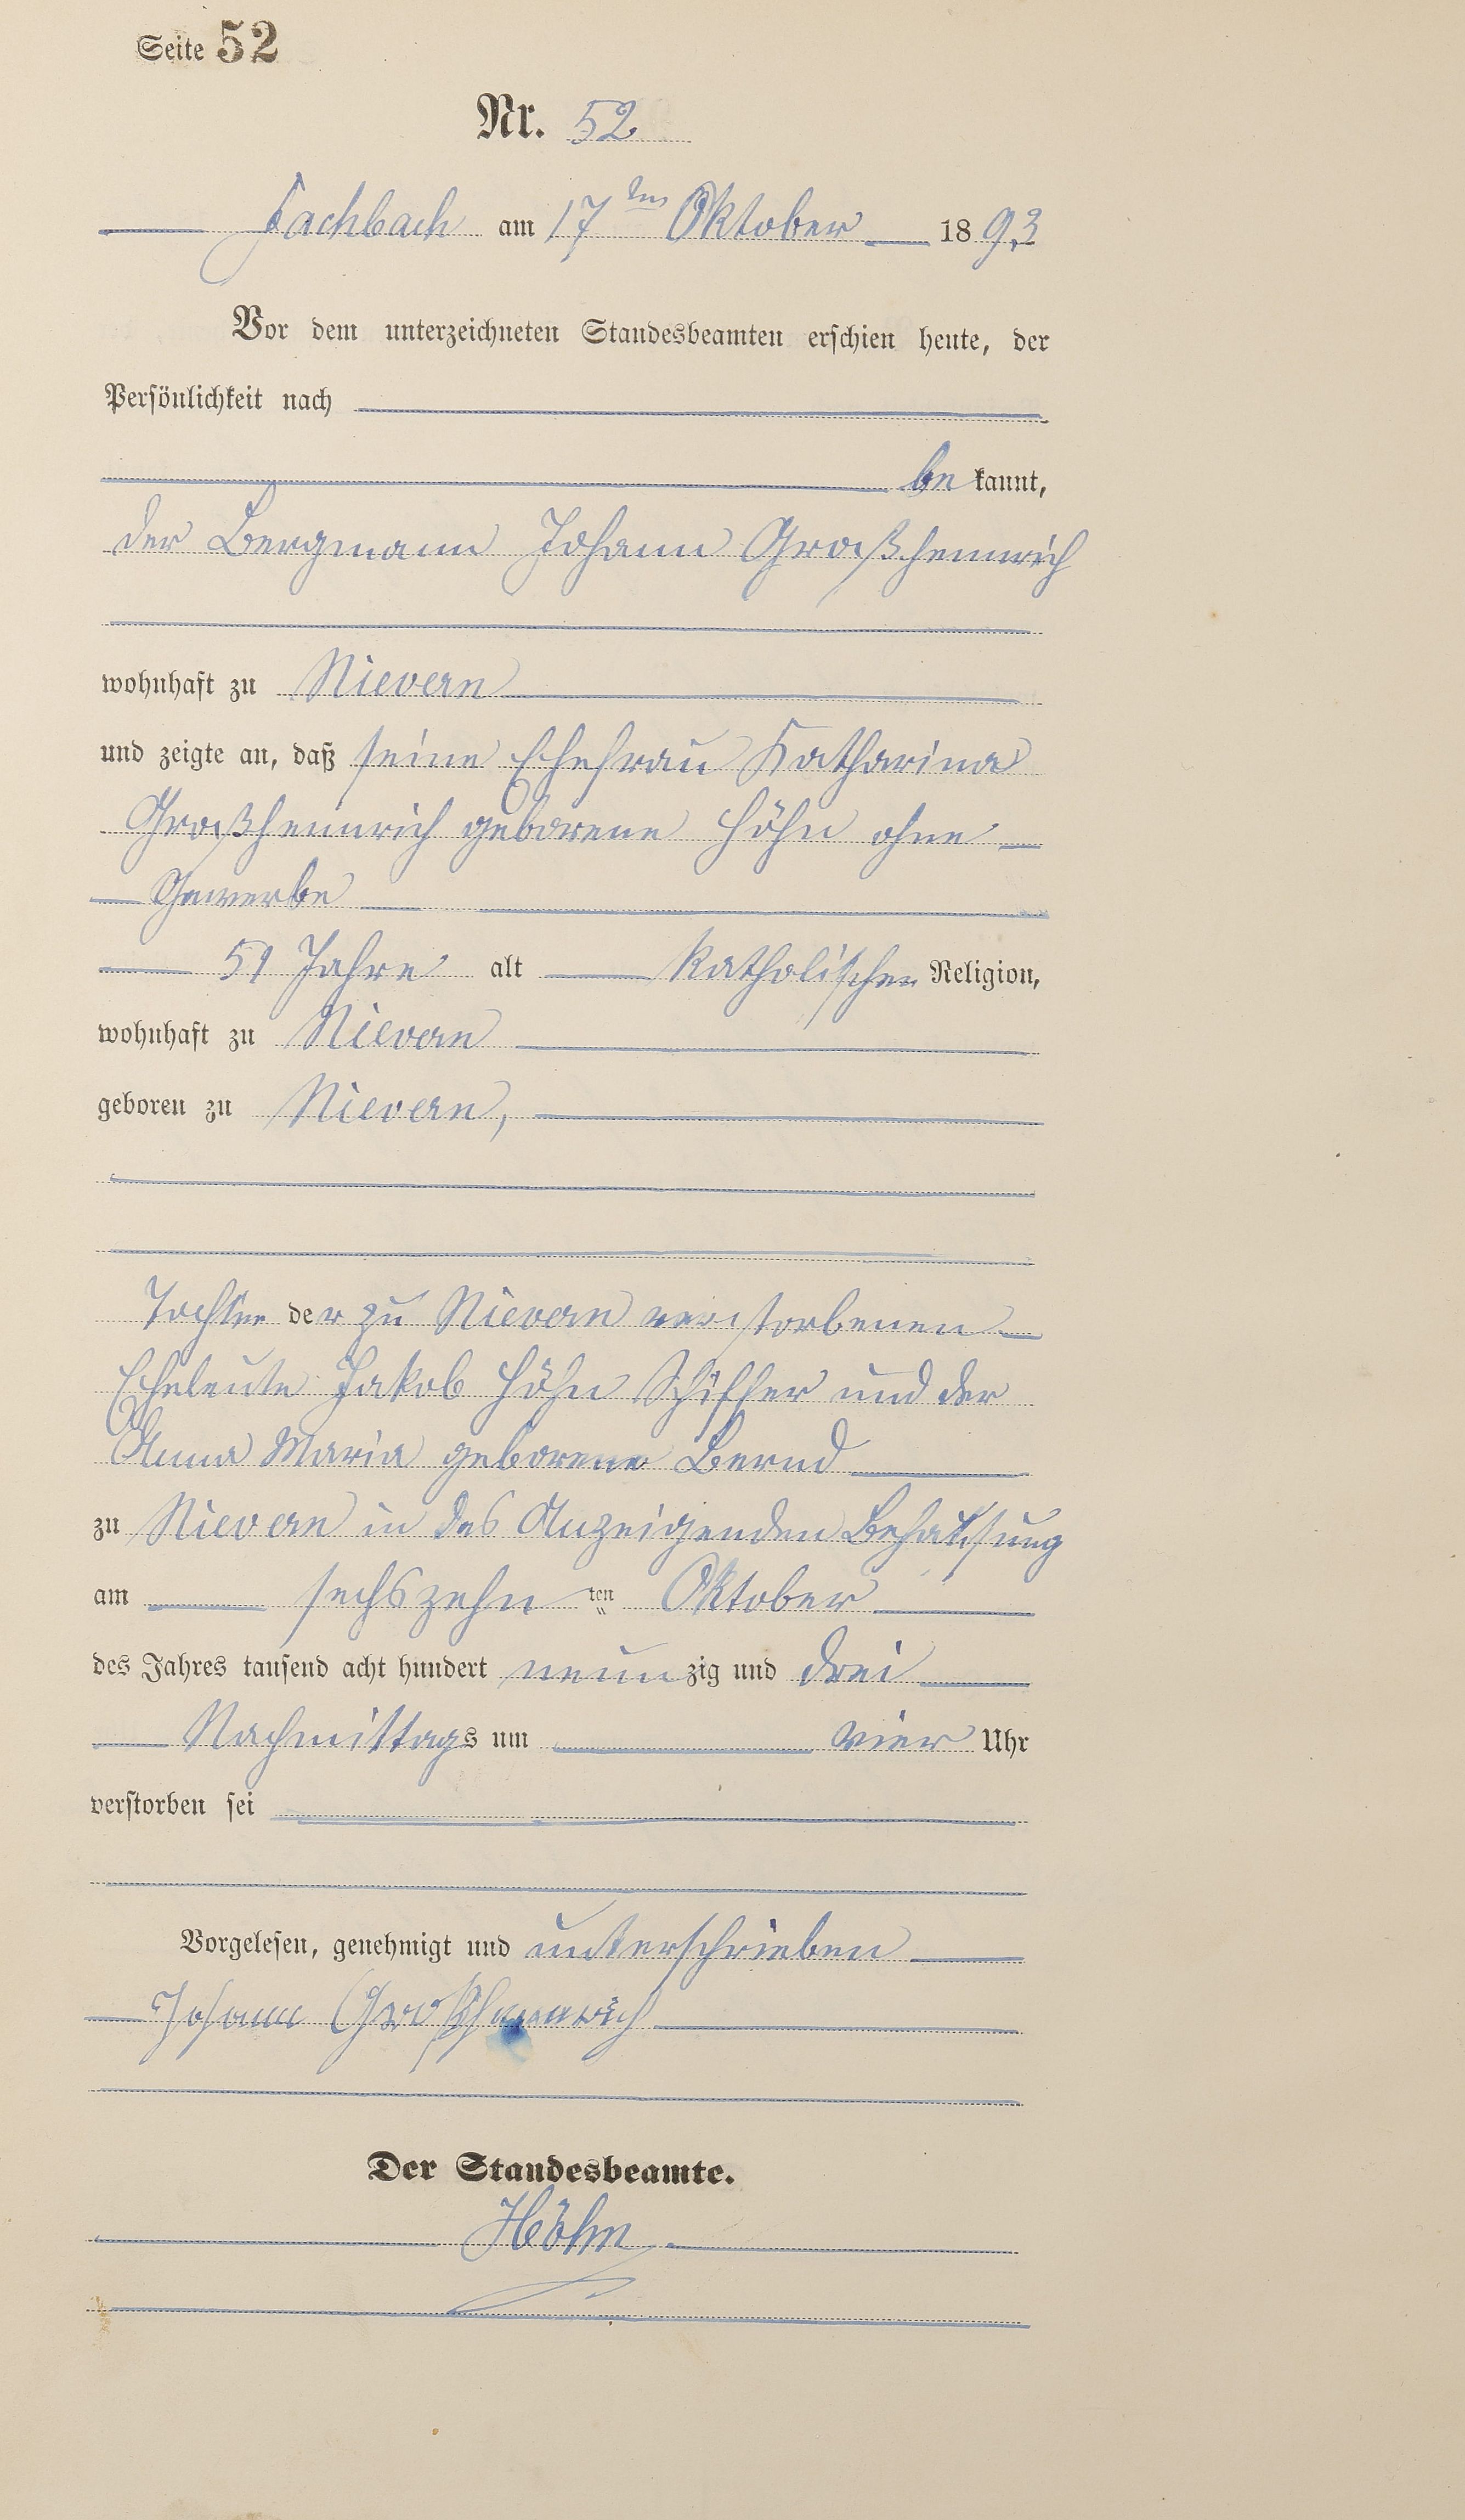 Seite 52
Nr. 52
Fachbach am 17ten Oktober 1893
Vor dem unterzeichneten Standesbeamten erschien heute, der
Persönlichkeit nach
bekannt,
der Bergmann Johann Großhennrich
wohnhaft zu Nievern
und zeigte an, daß seine Ehefrau Katharina
Großhennrich geborene Höhn ohne
Gewerbe
51 Jahre alt katholischer Religion,
wohnhaft zu Nievern
geboren zu Nievern,
Tochter der zu Nievern verstorbenen
Eheleute Jakob Höhn Schiffer und der
Anna Maria geborene Bernd
zu Nievern in des Anzeigenden Behausung
am sechszehnten Oktober
des Jahres tausend acht hundert neunzig und drei
Nachmittags um vier Uhr
verstorben sei
Vorgelesen, genehmigt und unterschrieben
Johann Großhennrich
Der Standesbeamte.
Höhn